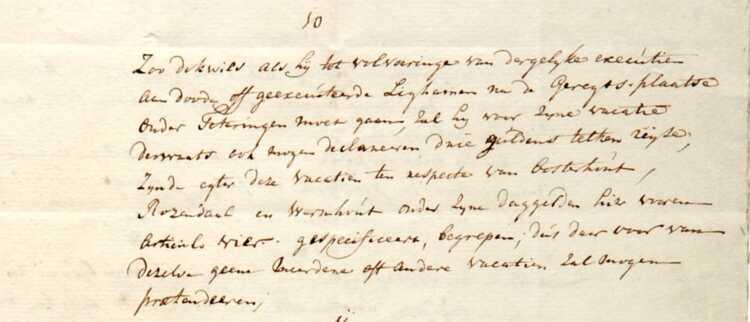 10
Zoo dikwils als hij tot volvoeringe van dergelyke executien
aan doode off geexecuteerde Lighamen na de Gereгts-plaatse
onder Teteringen moet gaan, zal hij voor zyne vacatie
derwaarts ook mogen declareeren drie guldens telken reijse,
zynde egter deze vacatien ten respecte van Oosterhout,
Rozendaal en Wernhout onder zyne daggelden hier voren
articulo vier gespecificeert, begrepen, dus daar voor van
dezelve geene meerdere off andere vacatien zal mogen
prætendeeren;